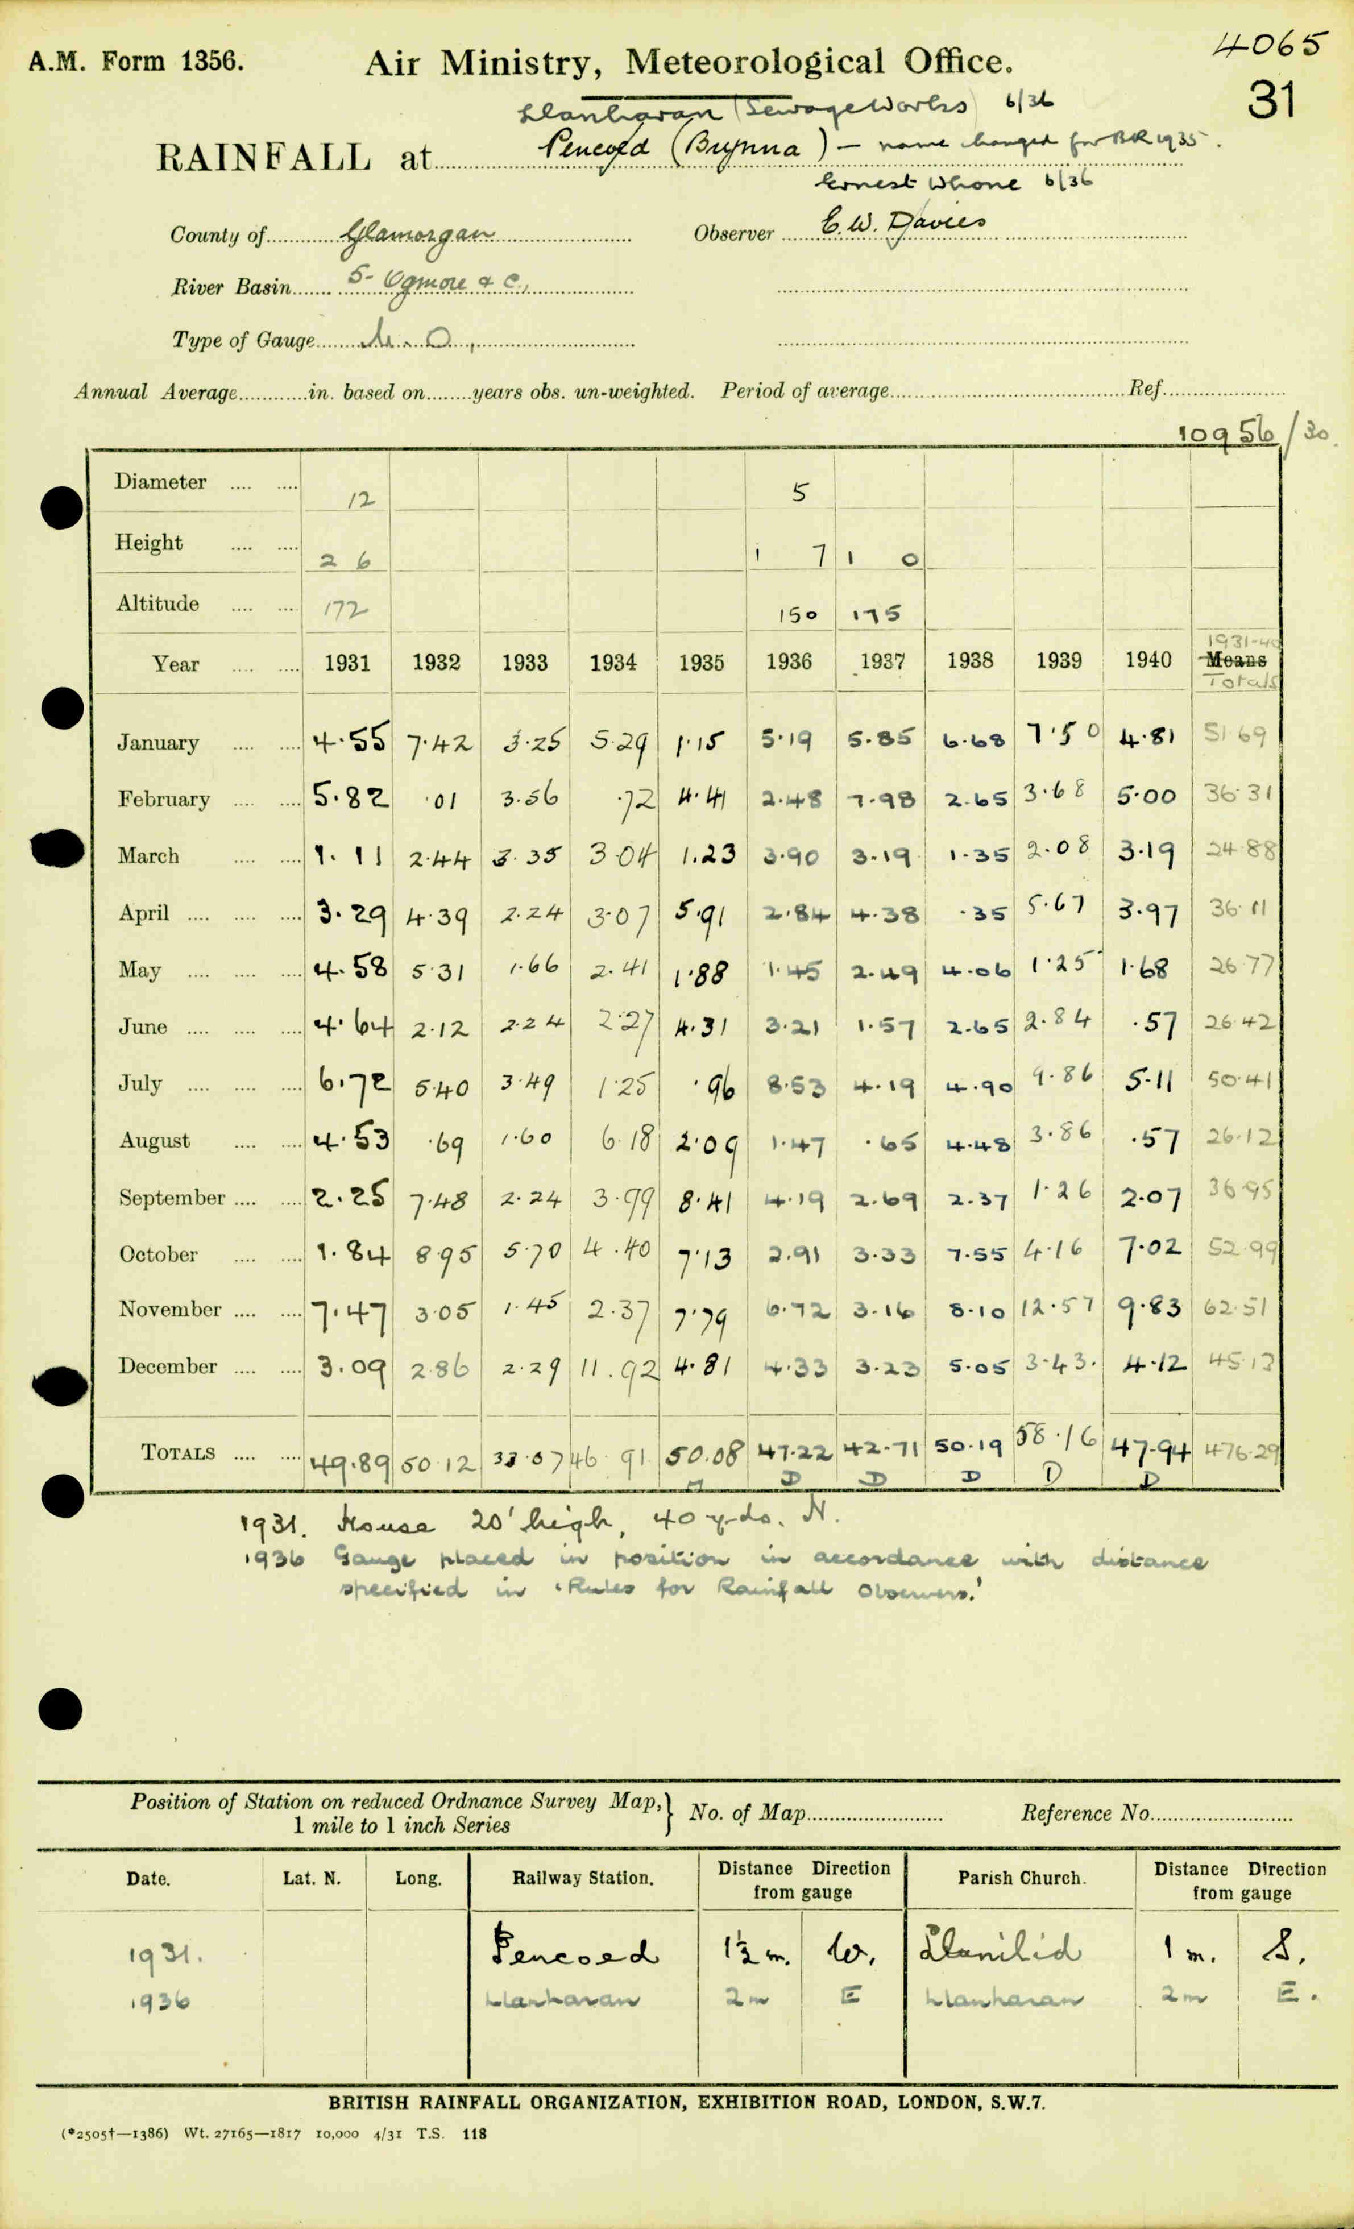 4065
A.M. Form 1356. Air Ministry, Meteorological Office. 31
Llanharan (Sewage Works) 6/36
RAINFALL at Pencoed (Brynna) — name changed for BR 1935.
Ernest Whone 6/36
County of Glamorgan Observer E. W. Davies
River Basin 5- Ogmore & C.,
Type of Gauge M. O,
Annual Average in. based on years obs. un-weighted. Period of average Ref.
10956/30
Diameter 12 5
Height 2 6 1 7 1 0
Altitude 172 150 175
1931-40
Year 1931 1932 1933 1934 1935 1936 1937 1938 1939 1940 Means
Totals
January 4.55 7.42 3.25 5.29 1.15 5.19 5.85 6.68 7.50 4.81 51.69
February 5.82 .01 3.56 .72 4.41 2.48 7.98 2.65 3.68 5.00 36.31
March 1.11 2.44 3.35 3.04 1.23 3.90 3.19 1.35 2.08 3.19 24.88
April 3.29 4.39 2.24 3.07 5.91 2.84 4.38 .35 5.67 3.97 36.11
May 4.58 5.31 1.66 2.41 1.88 1.45 2.49 4.06 1.25 1.68 26.77
June 4.64 2.12 2.24 2.27 4.31 3.21 1.57 2.65 2.84 .57 26.42
July 6.72 5.40 3.49 1.25 .96 8.53 4.19 4.90 9.86 5.11 50.41
August 4.53 .69 1.60 6.18 2.09 1.47 .65 4.48 3.86 .57 26.12
September 2.25 7.48 2.24 3.99 8.41 4.19 2.69 2.37 1.26 2.07 36.95
October 1.84 8.95 5.70 4.40 7.13 2.91 3.33 7.55 4.16 7.02 52.99
November 7.47 3.05 1.45 2.37 7.79 6.72 3.16 8.10 12.57 9.83 62.51
December 3.09 2.86 2.29 11.92 4.81 4.33 3.23 5.05 3.43. 4.12 45.13
TOTALS 49.89 50.12 33.07 46.91 50.08 47.22 42.71 50.19 58.16 47.94 476.29
D D D D D
1931. House 20' high, 40 yds. N.
1936 Gauge placed in position in accordance with distance
specified in 'Rules for Rainfall Observers.'
Position of Station on reduced Ordnance Survey Map, } No. of Map Reference No.
1 mile to 1 inch Series
Date. Lat. N. Long. Railway Station. Distance Direction from gauge Parish Church. Distance Direction from gauge
1931. Pencoed 1½ m. W. Llanilid 1 m. S.
1936 Llanharan 2m E Llanharan 2m E.
BRITISH RAINFALL ORGANIZATION, EXHIBITION ROAD, LONDON, S.W.7.
(*2505†—1386) Wt. 27165—1817 10,000 4/31 T.S. 118